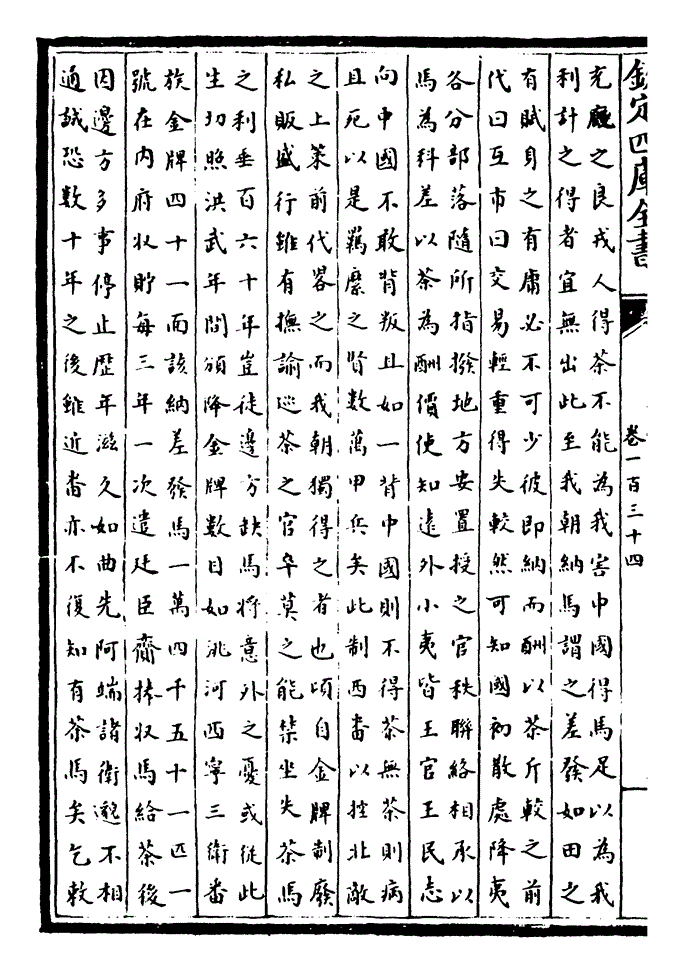 欽定四庫全書
卷一百三十四
充廐之良戎人得茶不能為我害中國得馬足以為我
利計之得者宜無出此至我朝納馬謂之差發如田之
有賦身之有庸必不可少彼即納而酬以茶斤較之前
代曰互市曰交易輕重得失較然可知國初散處降夷
各分部落隨所指撥地方安置授之官秩聯絡相承以
馬為科差以茶為酬價使知遠外小夷皆王官王民志
向中國不敢背叛且如一背中國則不得茶無茶則病
且死以是羈縻之賢數萬甲兵矣此制西番以控北敵
之上策前代畧之而我朝獨得之者也頃自金牌制廢
私販盛行雖有撫諭巡茶之官卒莫之能禁坐失茶馬
之利垂百六十年豈徒邊方缺馬將意外之憂或從此
生切照洪武年間頒降金牌數目如洮河西寧三衛番
族金牌四十一面該納差發馬一萬四千五十一匹一
號在內府收貯每三年一次遣廷臣齎捧收馬給茶後
因邊方多事停止歷年滋久如曲先阿端諸衛邈不相
通誠恐數十年之後雖近番亦不復知有茶馬矣乞敕